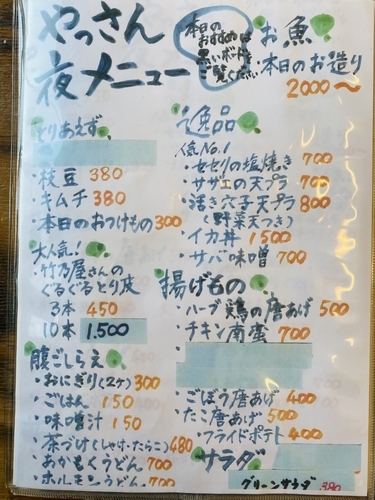 やっさん
夜メニュー
本日の
おすすめは
黒いボードを
ご覧ください
お魚
・本日のお造り
2000〜
とりあえず
・枝豆 380
・キムチ 380
・本日のおつけもの 300
大人気!
・竹乃屋さんの
ぐるぐるとり皮
3本 450
10本 1.500
腹ごしらえ
・おにぎり(2ケ) 300
・ごはん 150
・味噌汁 150
・茶づけ(しゃけ・たらこ) 480
・おかもくうどん 700
・ホルモンうどん 700
逸品
人気No.1
・セセリの塩焼き 700
・サザエの天プラ 700
・活き穴子天プラ 800
(野菜天つき)
・イカ丼 1500
・サバ味噌 700
揚げもの
・ハーブ鶏の唐あげ 500
・チキン南蛮 700
・ごぼう唐あげ 400
・たこ唐あげ 500
・フライドポテト 400
サラダ
グリーンサラダ 380